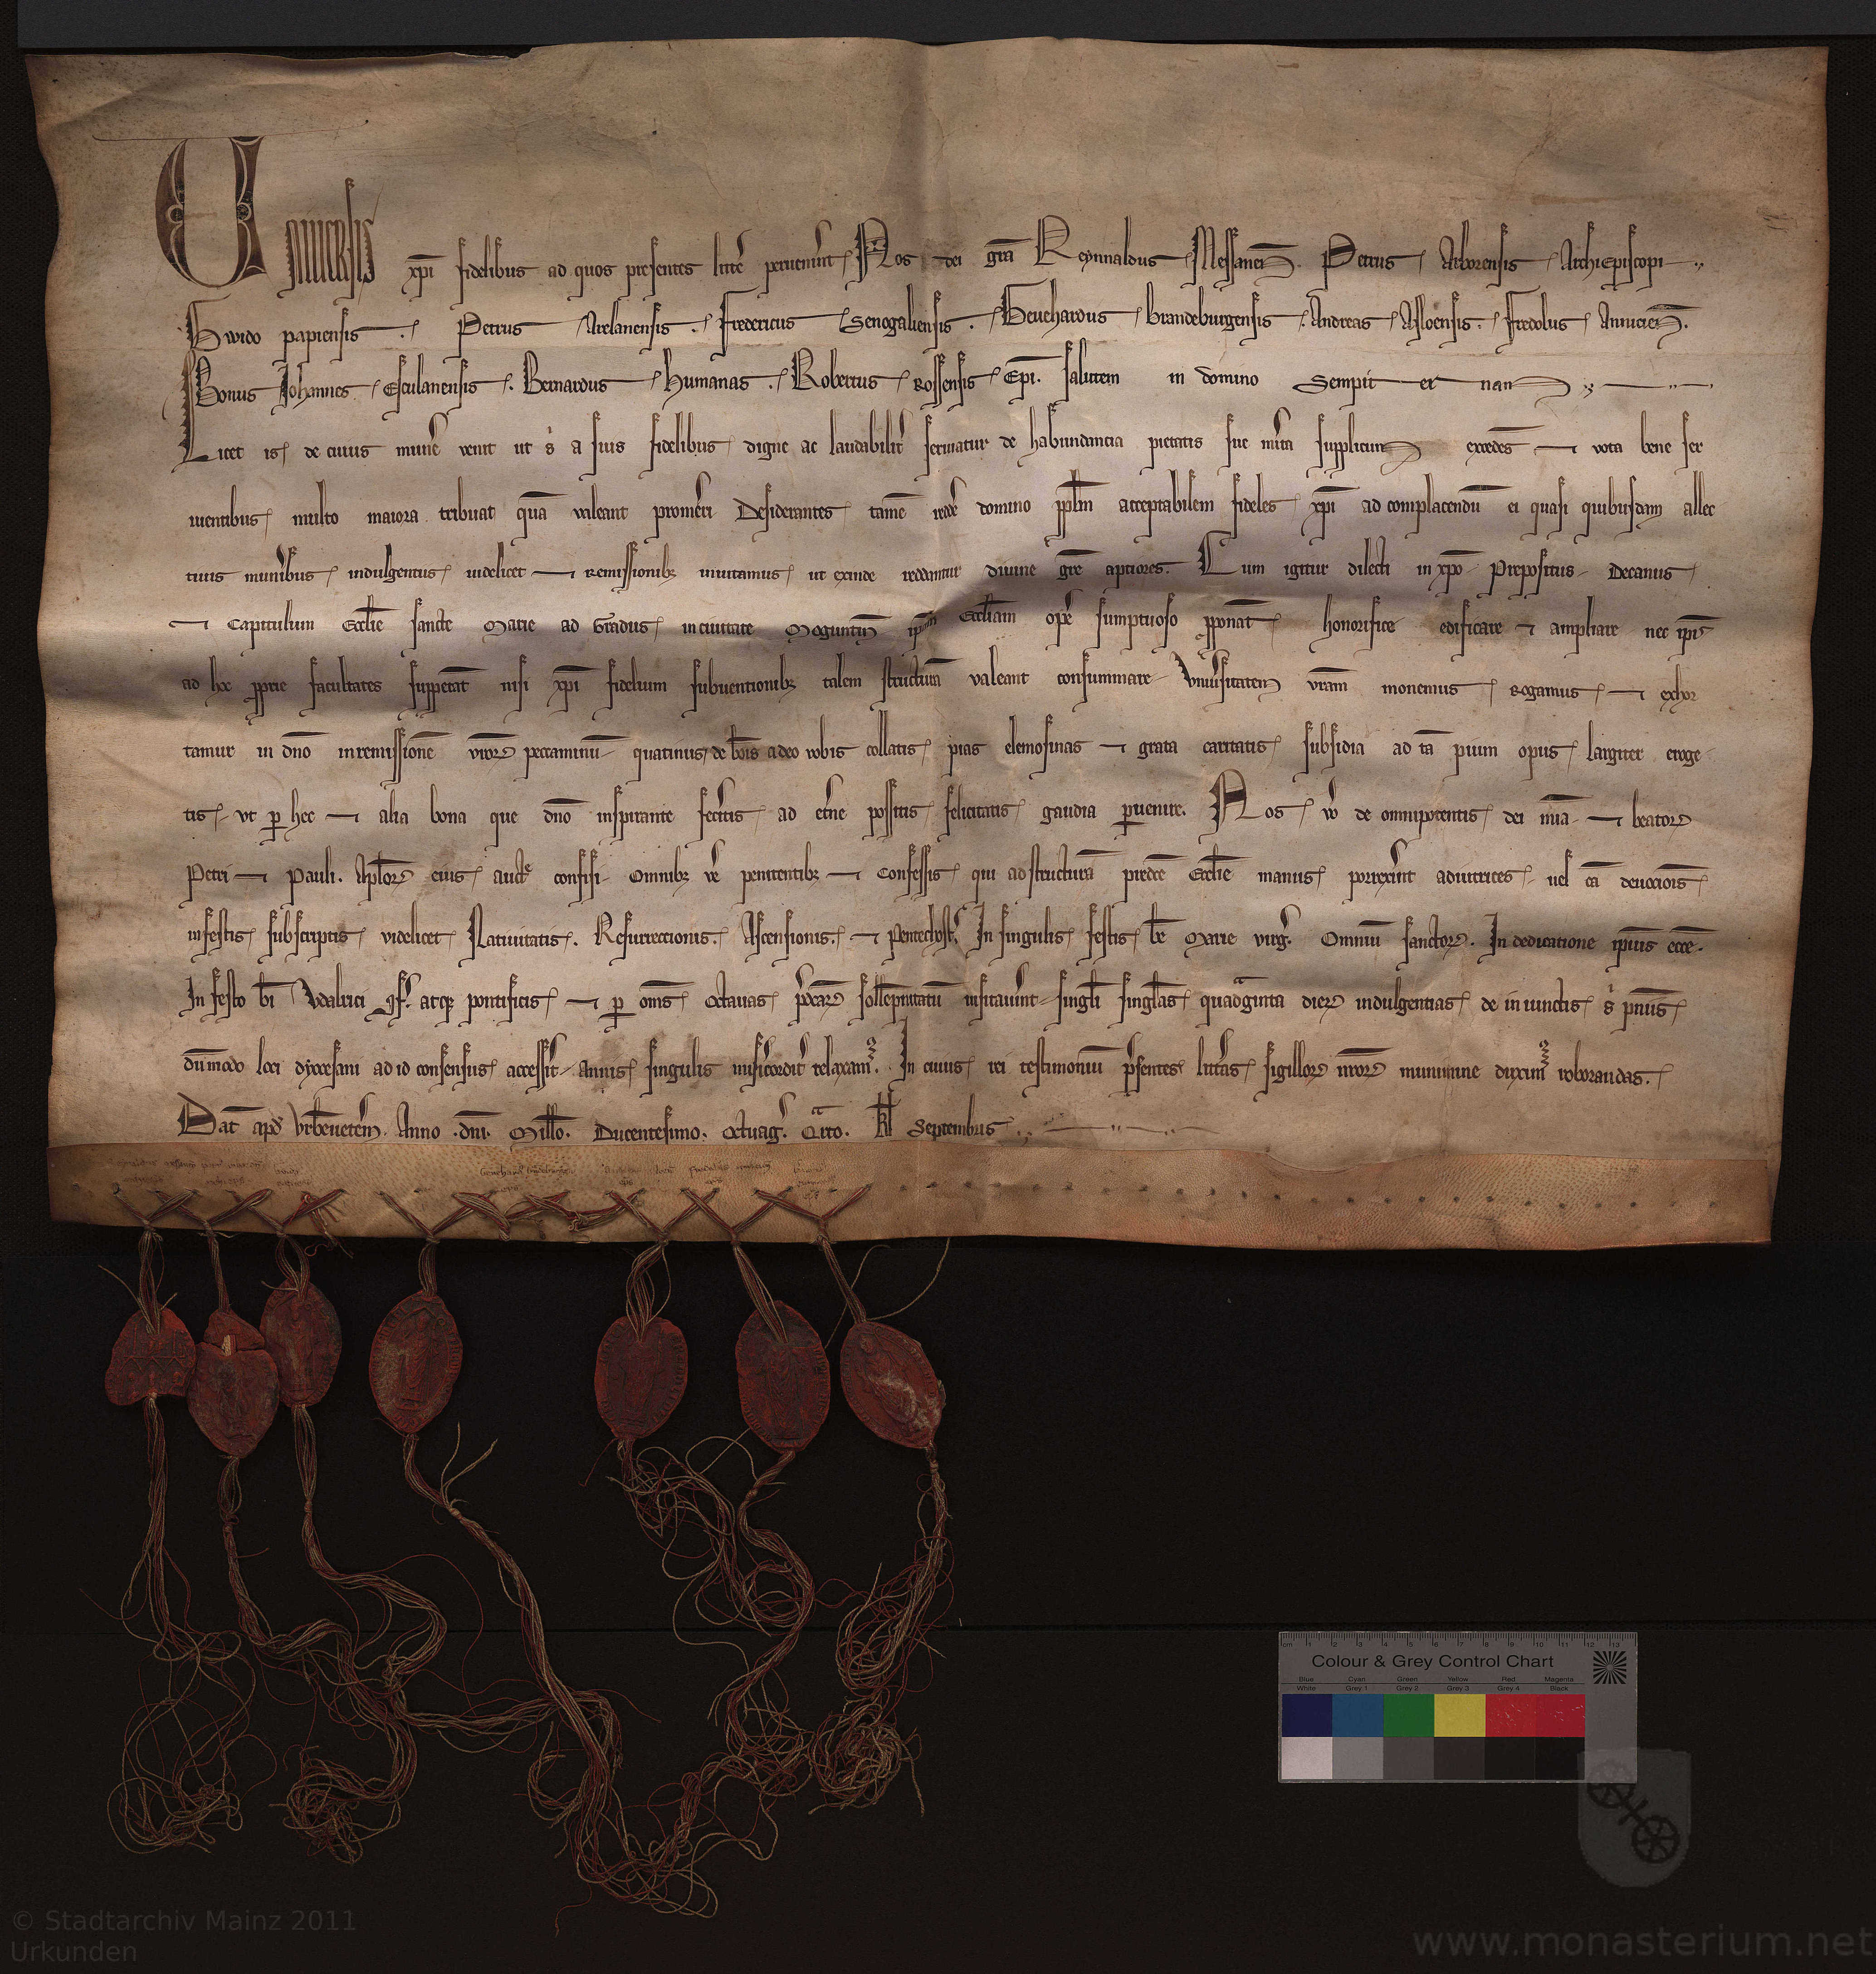 Uniuersis xpī fidelibus ad quos presentes littē peruenerint Nos dei grā Reynnaldus Messanen̄. Petrus Arborensis Archiepiscopi
Gwido papiensis. Petrus Arelanensis. Fredericus Senogaliensis. Geuehardus brandeburgensis. Andreas Asloensis. Fredolus Anucien̄.
Bonus Johannes Esculanensis. Bernardus humanas. Robertus Rossensis Epī. salutem in domino Sempiternam
Licet is de cuius munē venit ut s̄ a suis fidelibus digne ac laudabilit̄ seruiatur de habundancia pietatis sue mīta supplicum excedēs ⁊ vota bene ser
uientibus multo maiora tribuat quā valeant promēri Desiderantes tamē reddē domino pplm̄ acceptabilem fideles xpī ad complacendū ei quasi quibusdam allec
tiuis munībus indulgentiis uidelicet ⁊ remissionibꝫ inuitamus ut exinde reddantur diuine grē aptiores. Cum igitur dilecti in xpō Prepositus Decanus
⁊ Capitulum Eccl̄ie sancte Marie ad Gradus in ciuitate Moguntin̄ ip̄am Eccl̄iam opē sumptuoso pponāt honorifice edificare ⁊ ampliare nec ip̄is
ad hec pprie facultates suppetāt nisi xpī fidelium subuentionibꝫ talem structurā valeant consummare Vniūsitatem vrām monemus rogamus ⁊ exhor
tamur in dnō in remissionē vrōꝝ peccaminū quatinus de bōis a deo vobis collatis pias elemosinas ⁊ grata caritatis subsidia ad tā pium opus largiter eroge
tis vt ꝑ hec ⁊ alia bona que dnō inspirante fecītis ad etīne possitis felicitatis gaudia ꝑuenire. Nos v̄o de omnipotentis dei mīa ⁊ beatoꝝ
Petri ⁊ Pauli. Apl̄oꝝ eius auctē confisi Omnibꝫ vē penitentibꝫ ⁊ Confessis qui ad structurā predcē Eccl̄ie manus porrexīnt adiutrices uel cā deuocōis
in festis subscriptis videlicet Natiuitatis. Resurrectionis. Ascensionis. ⁊ Pentechost̄. In singulis festis bē Marie virḡ. Omniū sanctoꝝ. In dedicatione ip̄ius ecc̄e.
In festo bī Vdalrici ꝯf̄. atqꝫ pontificis ⁊ ꝑ om̄s Octauas p̄dcāꝝ sollēpnitatū uisitauīnt singl̄i singl̄as quadginta dieꝝ indulgentias de iniunctis s̄ pn̄iis
dūmodo loci dyocesani ad id consensus accessīt annis singulis misīcordit̄ relaxam̄. In cuius rei testimoniū p̄sentes littīas sigilloꝝ nrōꝝ munimine duxim̄ roborandas.
Dat̄ apd̄ vrbēuetēm. Anno dnī. Mill̄o. Ducentesimo. Octuaḡ. Qīto. kl̄ Septembris
Colour & Grey Control Chart
Blue Cyan Green Yellow Red Magenta
White Grey 1 Grey 2 Grey 3 Grey 4 Black
© Stadtarchiv Mainz 2011
Urkunden
www.monasterium.net